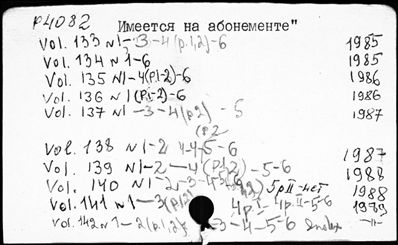 P4082
Имеется на абонементе"
Vol. 133 N1-3-4(p.1,2)-6 1985
Vol. 134 N1-6 1985
Vol. 135 N1-4(p.1-2)-6 1986
Vol. 136 N1(p.1-2)-6 1986
Vol. 137 N1-3-4(p2) -5 1987
(p2
Vol. 138 N1-2 4-5-6 1987
Vol. 139 N1-2-4(p1,2)-5-6 1988
Vol. 140 N1-2-3-4-5 5pII-нет 1988
Vol. 141 N1-3(p.1,2) 4pI 4pII-5-6 1989
Vol. 142 N1-2(p.1,2) 3-4-5-6 Index -"-